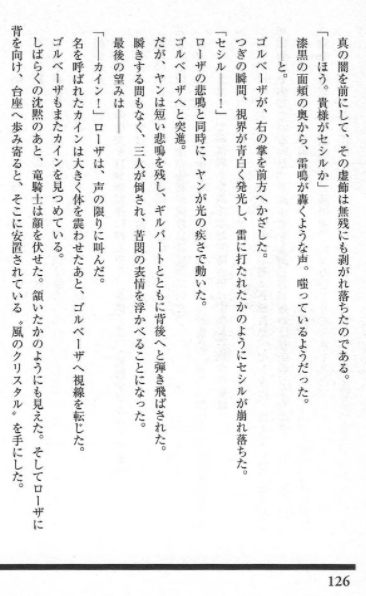 真の闇を前にして、その虚飾は無残にも剥がれ落ちたのである。
「――ほう。貴様がセシルか」
漆黒の面頬の奥から、雷鳴が轟くような声。嗤っているようだった。
――と。
ゴルベーザが、右の掌を前方へかざした。
つぎの瞬間、視界が青白く発光し、雷に打たれたかのようにセシルが崩れ落ちた。
「セシル――！」
ローザの悲鳴と同時に、ヤンが光の疾さで動いた。
ゴルベーザへと突進。
だが、ヤンは短い悲鳴を残し、ギルバートとともに背後へと弾き飛ばされた。
瞬きする間もなく、三人が倒され、苦悶の表情を浮かべることになった。
最後の望みは――
「――カイン！」ローザは、声の限りに叫んだ。
名を呼ばれたカインは大きく体を震わせたあと、ゴルベーザへ視線を転じた。
ゴルベーザもまたカインを見つめている。
しばらくの沈黙のあと、竜騎士は顔を伏せた。頷いたかのようにも見えた。そしてローザに
背を向け、台座へ歩み寄ると、そこに安置されている〝風のクリスタル〟を手にした。
126